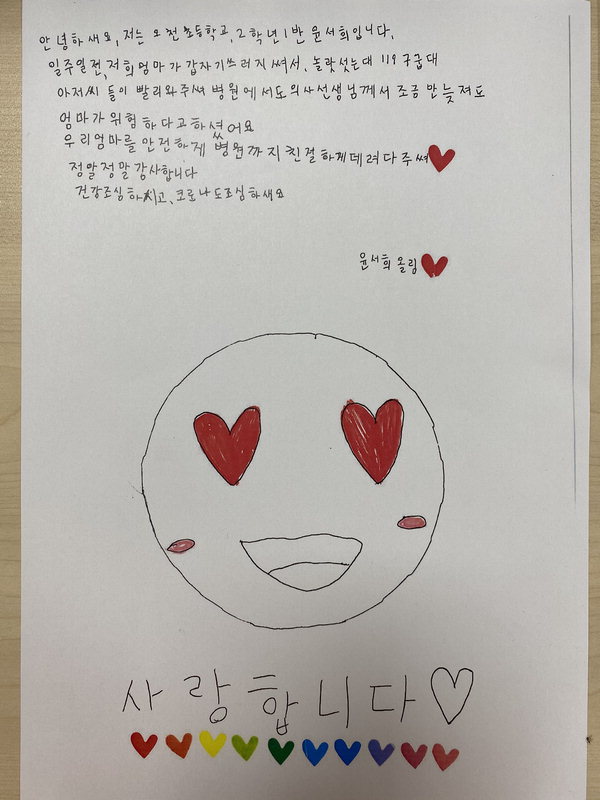 안녕하새요, 저는 오전초등학교, 2학년 1반 윤서희입니다.
일주일전, 저희엄마가 갑자기쓰러지셔서, 놀랏섯는대 119구급대
아저씨 들이 빨리와주셔 병원에서도의사선생님께서 조금만늦져도
엄마가 위험하다고하셨어요
우리엄마를 안전하게 병원까지친절하게데려다주셔
정말정말감사합니다
건강조심하시고, 코로나도조심하새요
윤서희 올림
사랑합니다